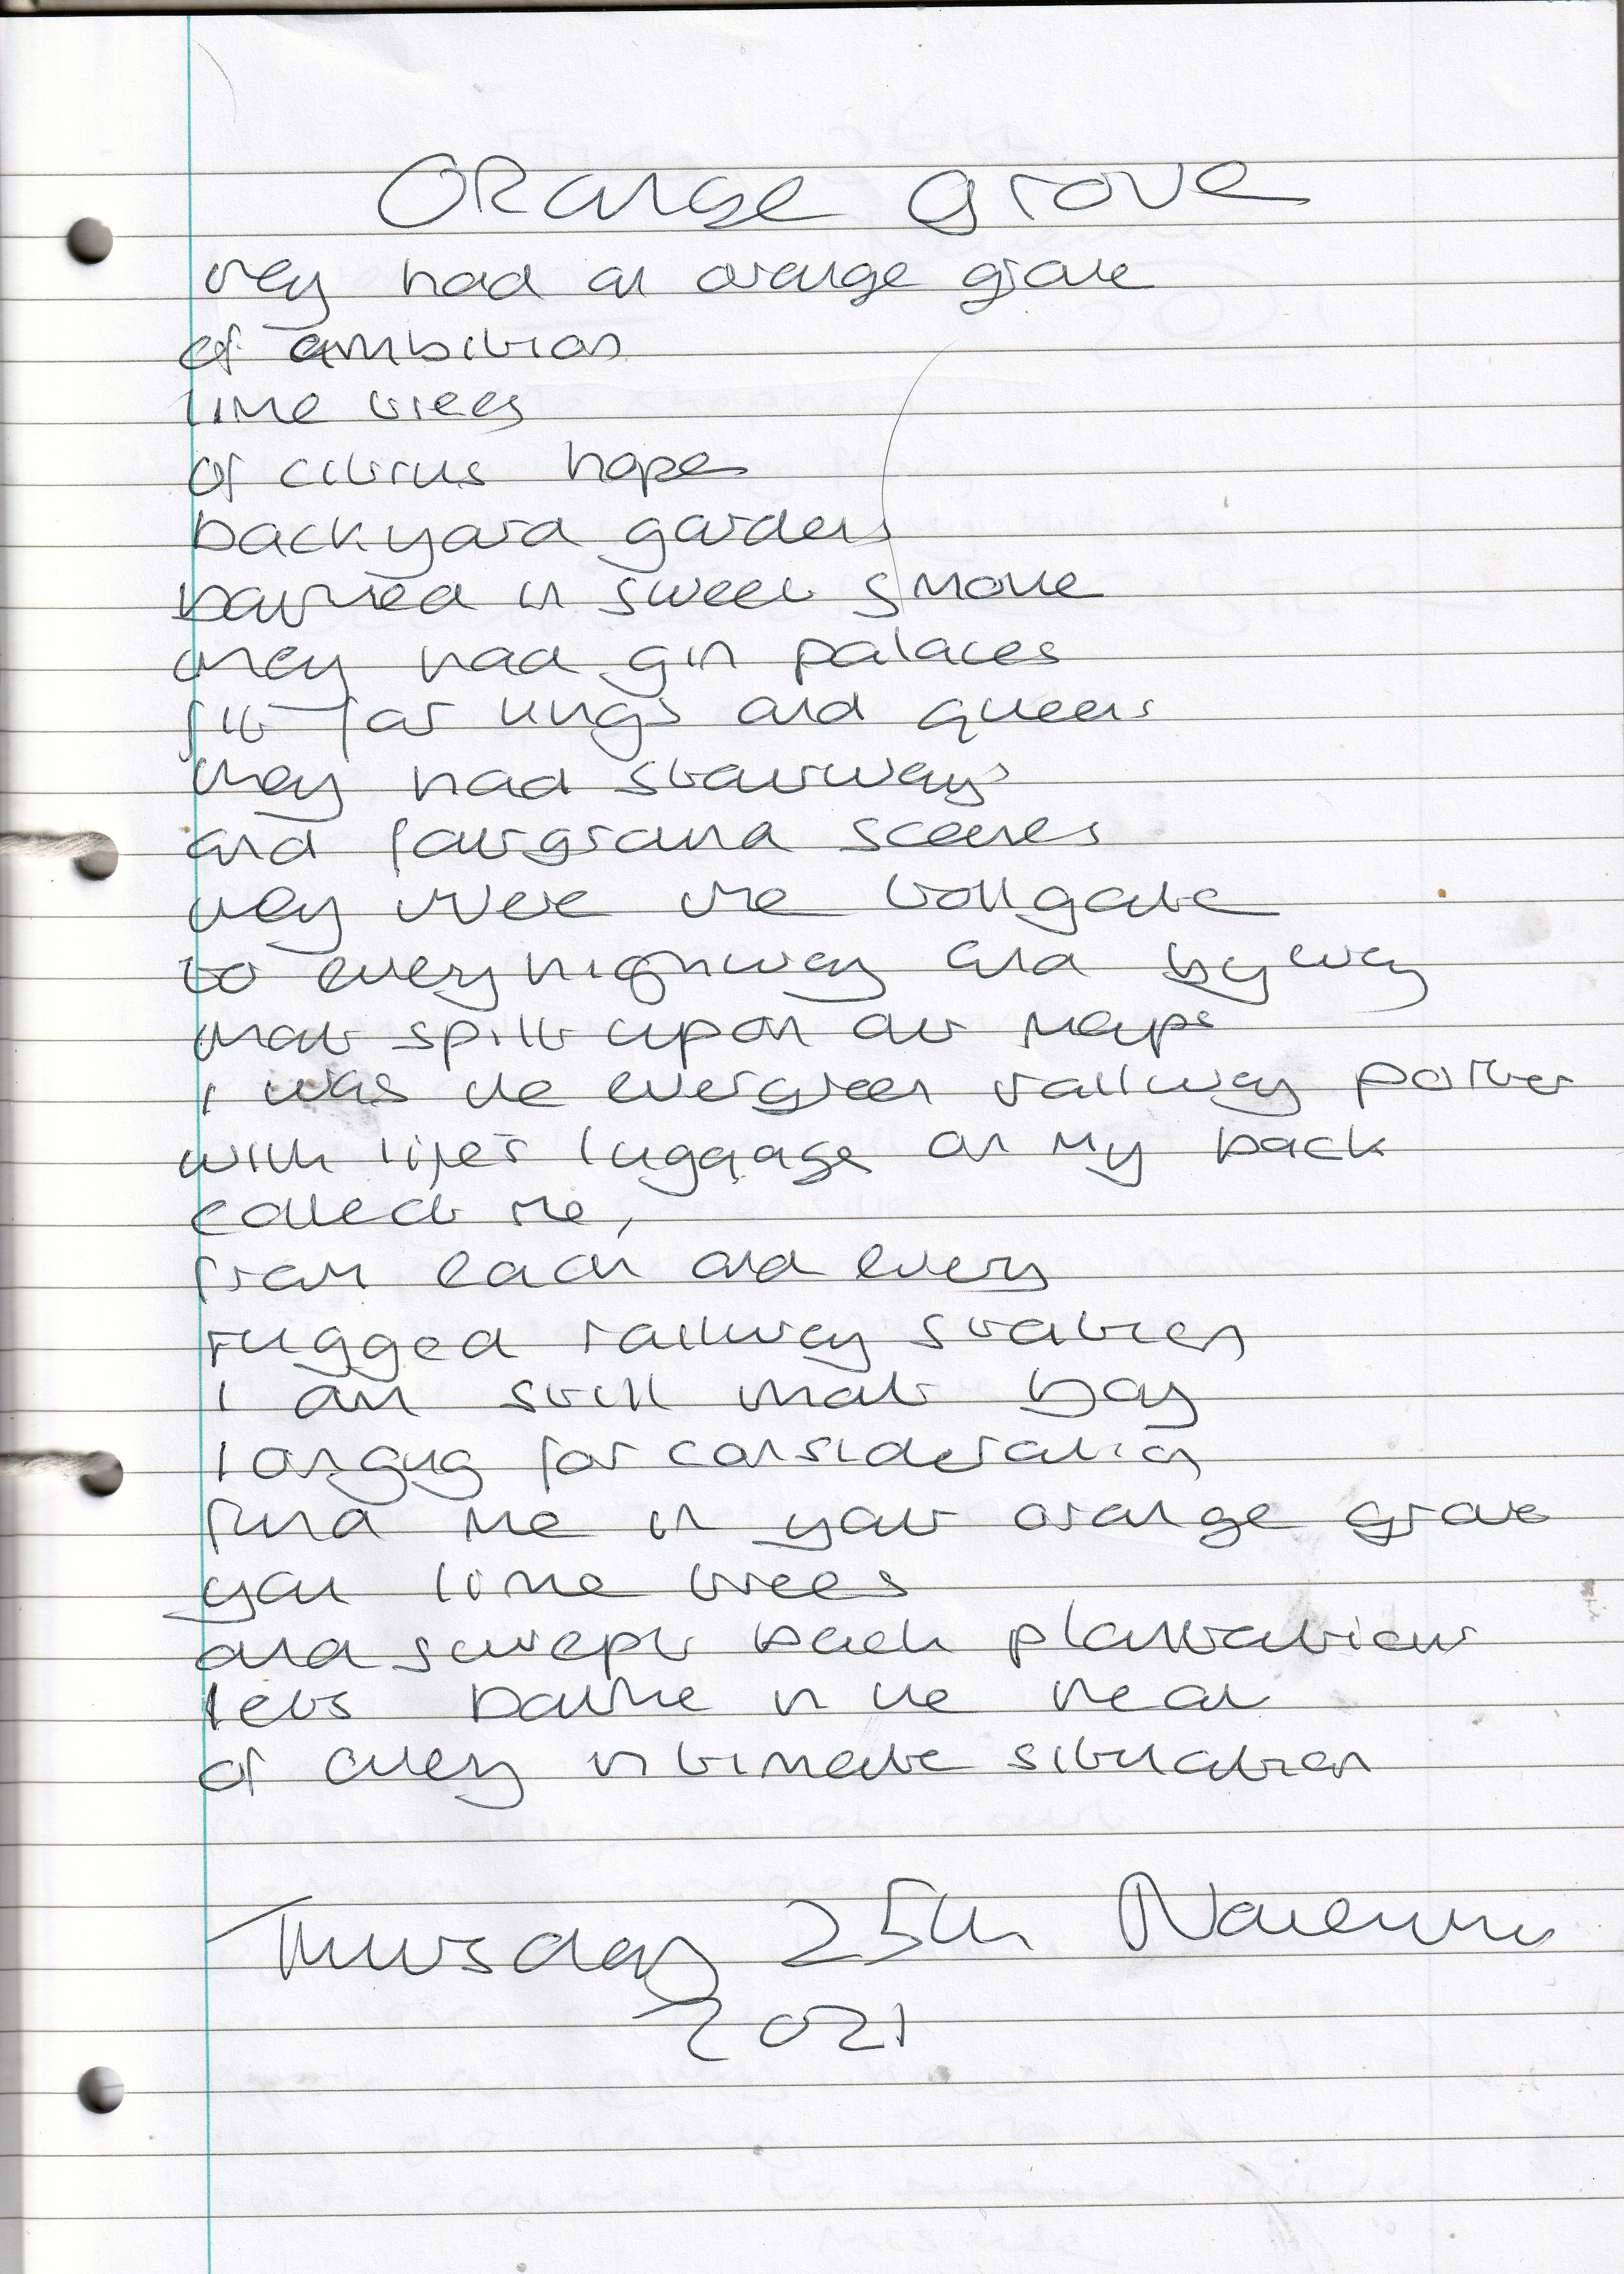 Orange grove
they had an orange grove
of ambition
lime trees
of citrus hope
backyard gardens
bathed in sweet smoke
they had gin palaces
fit for kings and queens
they had stairways
and fairground scenes
they were the tollgate
to every highway and byway
that spilt upon our maps
I was the evergreen railway porter
with life's luggage on my back
collect me,
from each and every
rugged railway station
I am still that boy
longing for consideration
find me in your orange grove
your lime trees
and swept back plantations
lets bathe in the heat
of every intimate situation
Thursday 25th November
2021